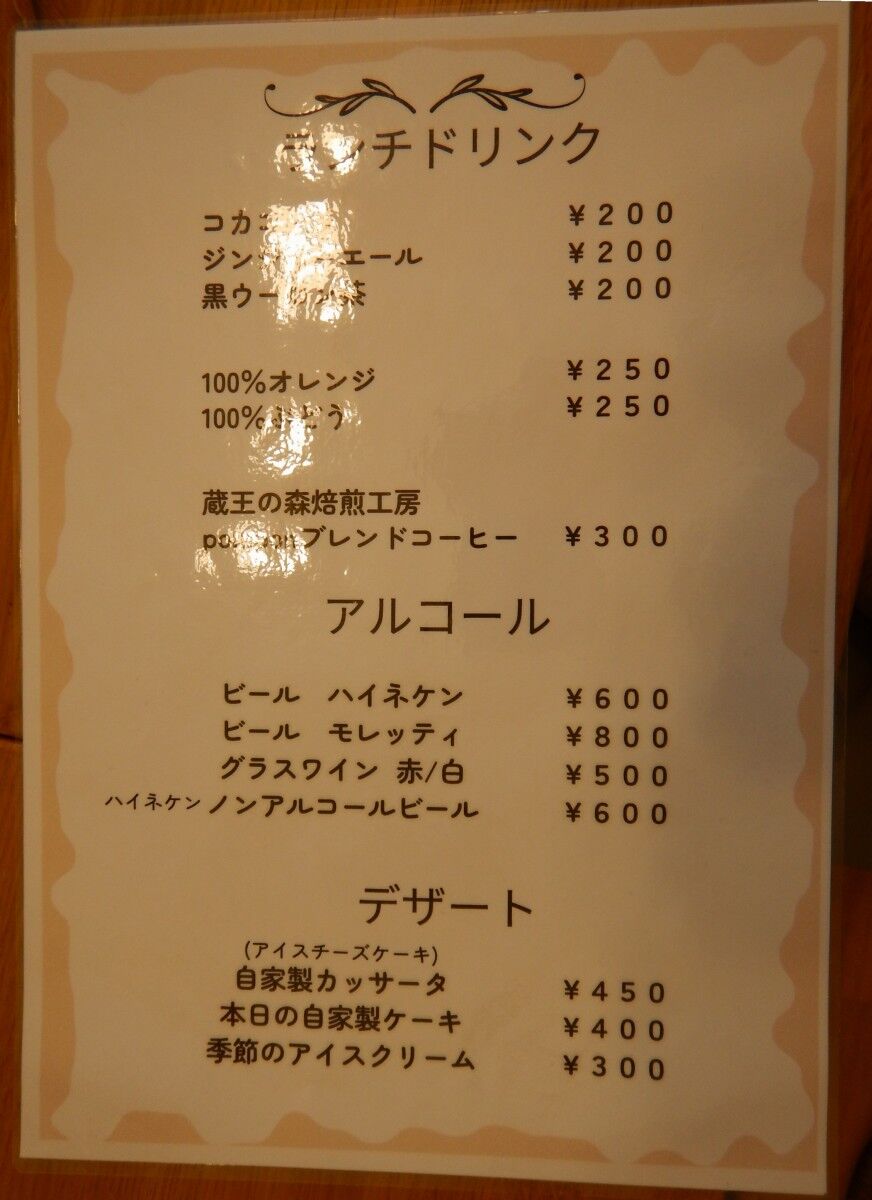 ランチドリンク
¥200
ジンジャーエール ¥200
黒ウーロン茶 ¥200
100%オレンジ ¥250
100%ぶどう ¥250
蔵王の森焙煎工房
ブレンドコーヒー ¥300
アルコール
ビール ハイネケン ¥600
ビール モレッティ ¥800
グラスワイン 赤/白 ¥500
ハイネケン ノンアルコールビール ¥600
デザート
(アイスチーズケーキ)
自家製カッサータ ¥450
本日の自家製ケーキ ¥400
季節のアイスクリーム ¥300